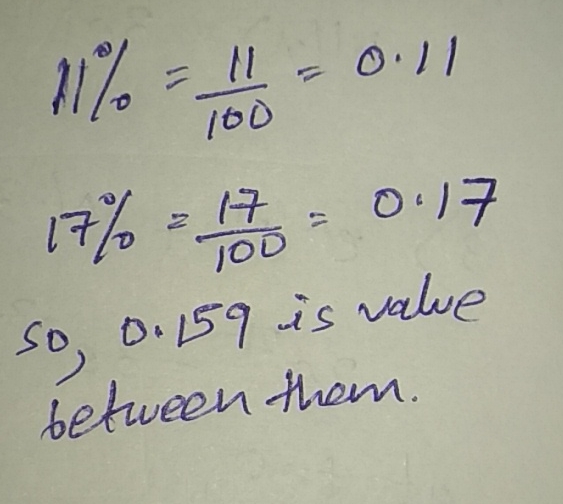 11% = 11/100 = 0.11
17% = 17/100 = 0.17
so, 0.159 is value
between them.